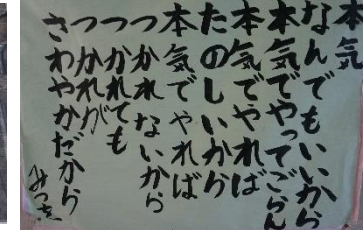 本気
なんでもいいから
本気でやってごらん
本気でやれば
たのしいから
本気でやれば
つかれないから
つかれても
つかれが
さわやかだから
みつを